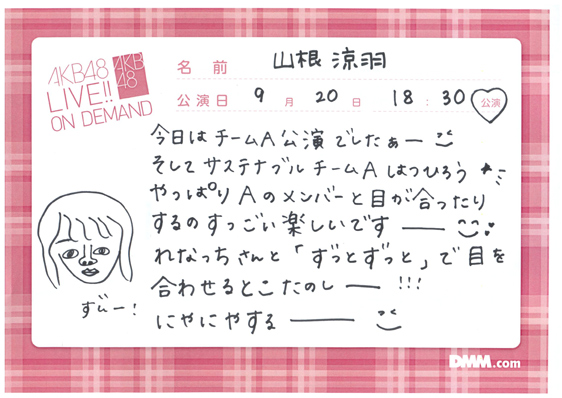 AKB48
LIVE!!
ON DEMAND
AKB
48
名前 山根 涼羽
公演日 9月 20日 18:30 公演
今日は チームA公演 でしたぁー
そして サステナブル チームA はつひろう
やっぱり Aのメンバーと目が合ったり
するの すっごい楽しいです ——
れなっちさんと「ずっとずっと」で目を
合わせるとこたのし — !!!
にやにやする ——
ずぃー!
DMM.com